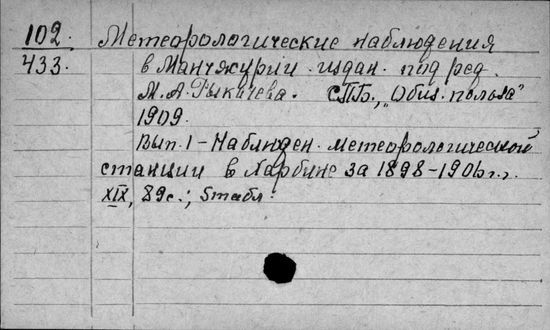 102. Метеорологические наблюдения
433. в Манчжурии. издан. под ред.
М. А. Рыкачева. СПБ., „Общ. польза"
1909.
Вып. 1 - Наблюден. метеорологической
станции в Харбине за 1898-1906 г.г.
XIX, 89 с.; 5 табл.